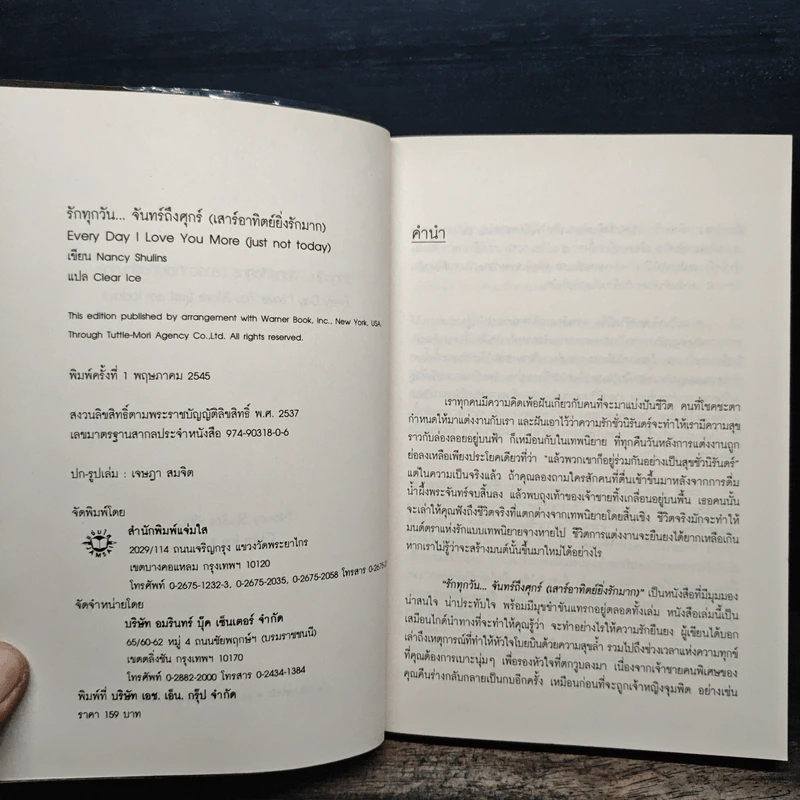 รักทุกวัน... จันทร์ถึงศุกร์ (เสาร์อาทิตย์ยิ่งรักมาก)
Every Day I Love You More (just not today)
เขียน Nancy Shulins
แปล Clear Ice
This edition published by arrangement with Warner Book, Inc., New York, USA.
Through Tuttle-Mori Agency Co.,Ltd. All rights reserved.
พิมพ์ครั้งที่ 1 พฤษภาคม 2545
สงวนลิขสิทธิ์ตามพระราชบัญญัติลิขสิทธิ์ พ.ศ. 2537
เลขมาตรฐานสากลประจำหนังสือ 974-90318-0-6
ปก-รูปเล่ม : เจษฎา สมจิต
จัดพิมพ์โดย
สำนักพิมพ์แจ่มใส
2029/114 ถนนเจริญกรุง แขวงวัดพระยาไกร
เขตบางคอแหลม กรุงเทพฯ 10120
โทรศัพท์ 0-2675-1232-3, 0-2675-2035, 0-2675-2058 โทรสาร
จัดจำหน่ายโดย
บริษัท อมรินทร์ บุ๊ค เซ็นเตอร์ จำกัด
65/60-62 หมู่ 4 ถนนชัยพฤกษ์ฯ (บรมราชชนนี)
เขตตลิ่งชัน กรุงเทพฯ 10170
โทรศัพท์ 0-2882-2000 โทรสาร 0-2434-1384
พิมพ์ที่ บริษัท เอช. เอ็น. กรุ๊ป จำกัด
ราคา 159 บาท
คำนำ
เราทุกคนมีความคิดเพ้อฝันเกี่ยวกับคนที่จะมาแบ่งปันชีวิต คนที่โชคชะตา
กำหนดให้มาแต่งงานกับเรา และฝันเอาไว้ว่าความรักชั่วนิรันดร์จะทำให้เรามีความสุข
ราวกับล่องลอยอยู่บนฟ้า ก็เหมือนกับในเทพนิยาย ที่ทุกคืนวันหลังการแต่งงานถูก
ย่อลงเหลือเพียงประโยคเดียวที่ว่า "แล้วพวกเขาก็อยู่ร่วมกันอย่างเป็นสุขชั่วนิรันดร์"
แต่ในความเป็นจริงแล้ว ถ้าคุณลองถามใครสักคนที่ตื่นเช้าขึ้นมาหลังจากการดื่ม
น้ำผึ้งพระจันทร์จบสิ้นลง แล้วพบถุงเท้าของเจ้าชายทิ้งเกลื่อนอยู่บนพื้น เธอคนนั้น
จะเล่าให้คุณฟังถึงชีวิตจริงที่แตกต่างจากเทพนิยายโดยสิ้นเชิง ชีวิตจริงมักจะทำให้
มนต์ตราแห่งรักแบบเทพนิยายจางหายไป ชีวิตการแต่งงานจะยืนยงได้ยากเหลือเกิน
หากเราไม่รู้ว่าจะสร้างมนต์นั้นขึ้นมาใหม่ได้อย่างไร
"รักทุกวัน... จันทร์ถึงศุกร์ (เสาร์อาทิตย์ยิ่งรักมาก)" เป็นหนังสือที่มีมุมมอง
น่าสนใจ น่าประทับใจ พร้อมมีมุขขำขันแทรกอยู่ตลอดทั้งเล่ม หนังสือเล่มนี้เป็น
เสมือนไกด์นำทางที่จะทำให้คุณรู้ว่า จะทำอย่างไรให้ความรักยืนยง ผู้เขียนได้บอก
เล่าถึงเหตุการณ์ที่ทำให้หัวใจโบยบินด้วยความสุขล้ำ รวมไปถึงช่วงเวลาแห่งความทุกข์
ที่คุณต้องการเบาะนุ่มๆ เพื่อรองหัวใจที่ตกวูบลงมา เนื่องจากเจ้าชายคนพิเศษของ
คุณคืนร่างกลับกลายเป็นกบอีกครั้ง เหมือนก่อนที่จะถูกเจ้าหญิงจุมพิต อย่างเช่น